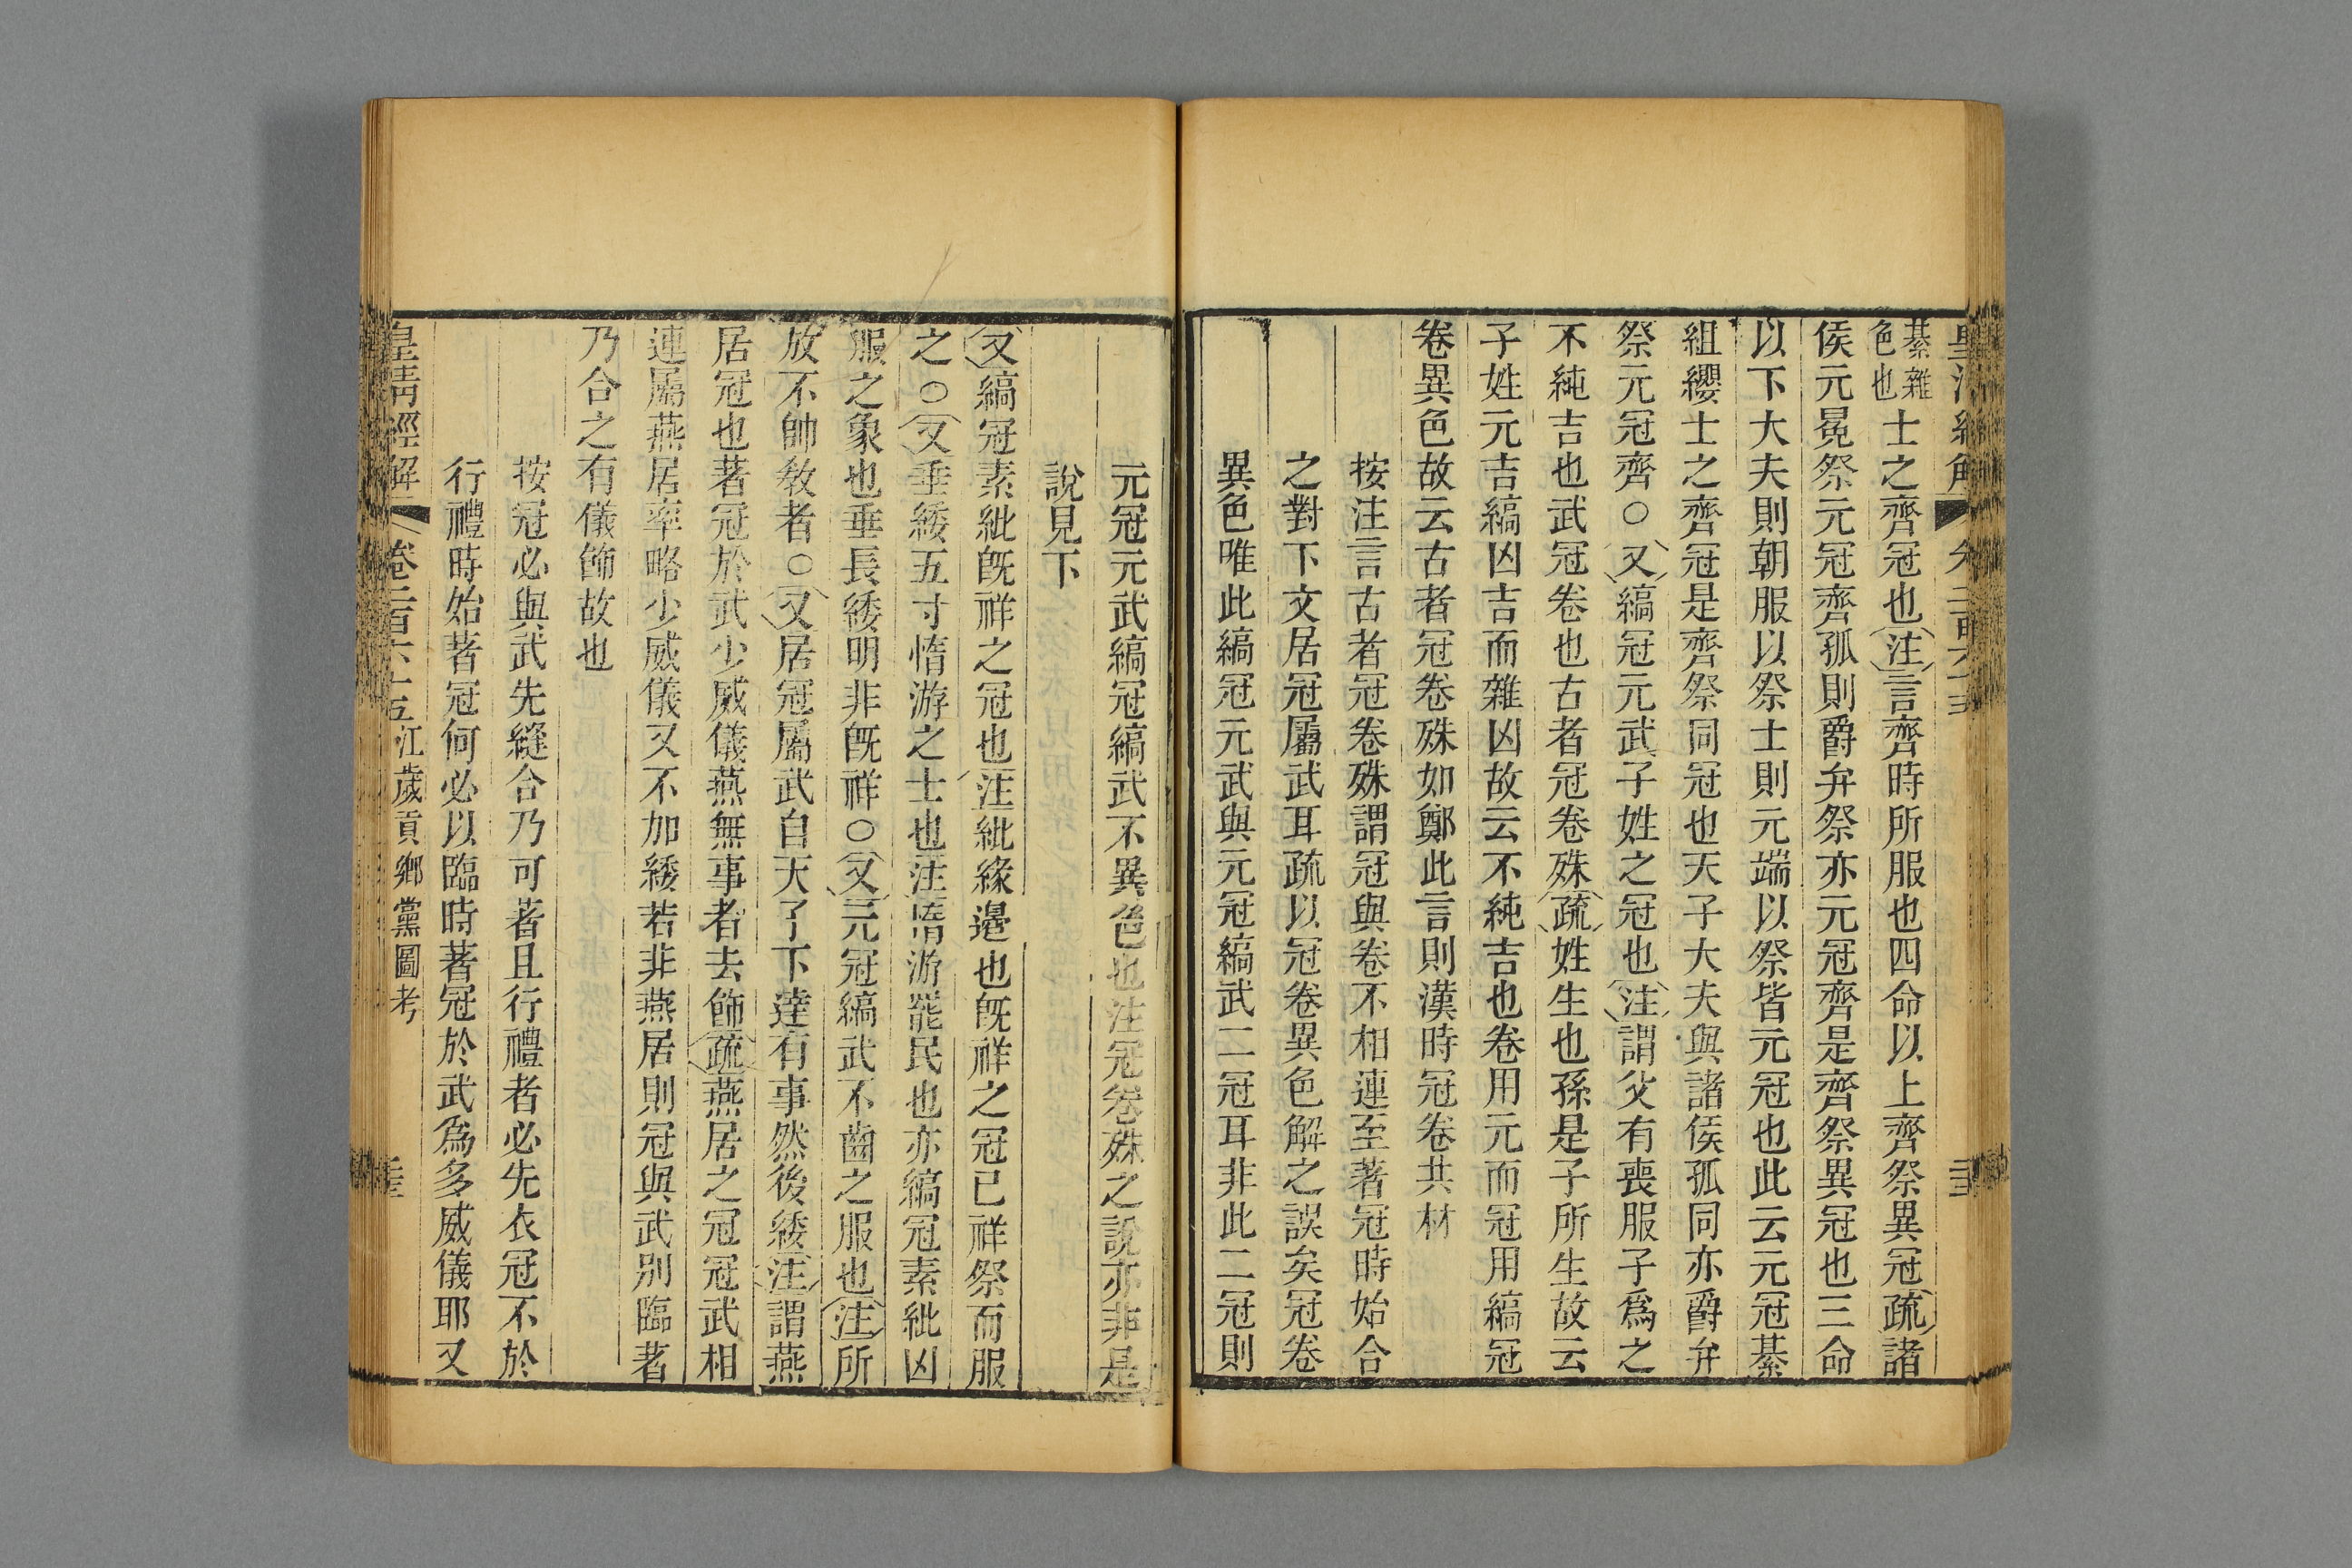 綦雜色也士之齊冠也注言齊時所服也四命以上齊祭異冠疏諸
侯元冕祭元冠齊孤則爵弁祭亦元冠齊是齊祭異冠也三命
以下大夫則朝服以祭士則元端以祭皆元冠也此云元冠綦
組纓士之齊冠是齊祭同冠也天子大夫與諸侯孤同亦爵弁
祭元冠齊○又縞冠元武子姓之冠也注謂父有喪服子爲之
不純吉也武冠卷也古者冠卷殊疏姓生也孫是子所生故云
子姓元吉縞凶吉而雜凶故云不純吉也卷用元而冠用縞冠
卷異色故云古者冠卷殊如鄭此言則漢時冠卷共材
按注言古者冠卷殊謂冠與卷不相連至著冠時始合
之對下文居冠屬武耳疏以冠卷異色解之誤矣冠卷
異色唯此縞冠元武與元冠縞武二冠耳非此二冠則
元冠元武縞冠縞武不異色也注冠卷殊之說亦非是
說見下
又縞冠素紕旣祥之冠也注紕緣邊也旣祥之冠已祥祭而服
之○又垂緌五寸惰游之士也注惰游罷民也亦縞冠素紕凶
服之象也垂長緌明非旣祥○又元冠縞武不齒之服也注所
放不帥敎者○又居冠屬武自天子下達有事然後緌注謂燕
居冠也著冠於武少威儀燕無事者去飾疏燕居之冠冠武相
連屬燕居率略少威儀又不加緌若非燕居則冠與武別臨著
乃合之有儀飾故也
按冠必與武先縫合乃可著且行禮者必先衣冠不於
行禮時始著冠何必以臨時著冠於武爲多威儀耶又
皇淸經解 卷二百六十五 江歲貢鄕黨圖考